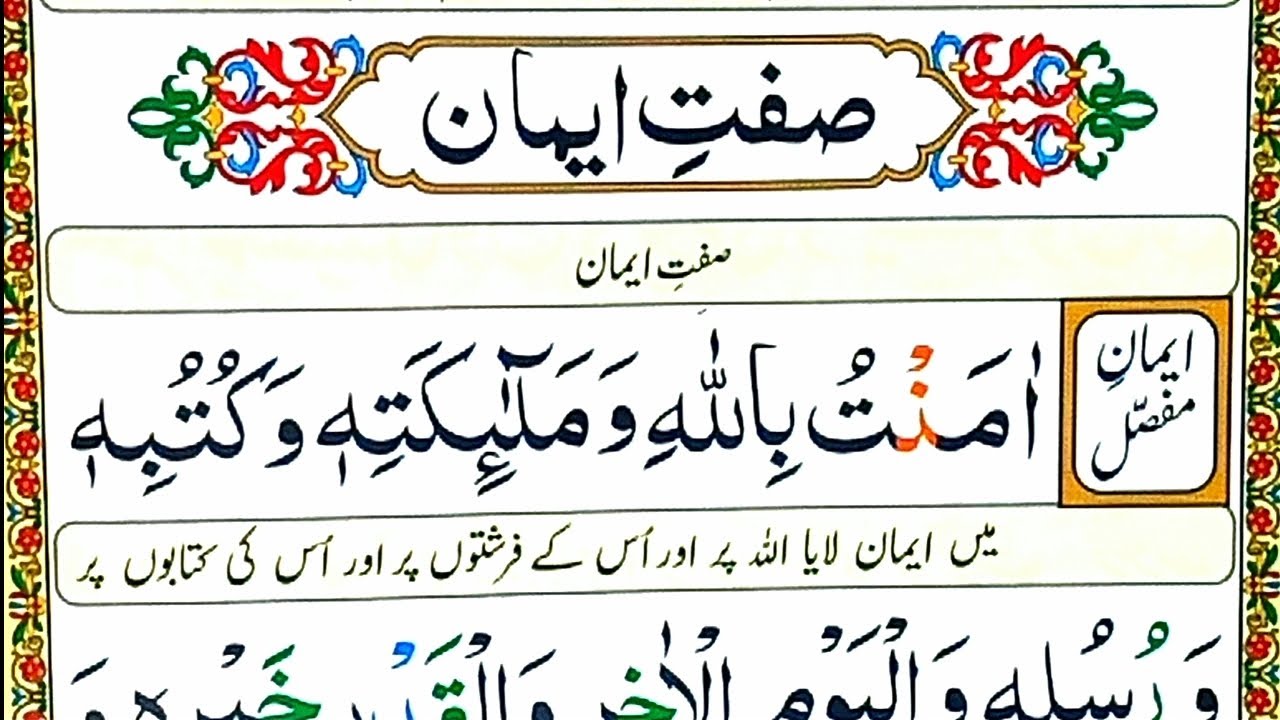 صفتِ ایمان
صفتِ ایمان
ایمانِ
مفصّل
اٰمَنْتُ بِاللّٰهِ وَ مَلٰٓئِكَتِهٖ وَ كُتُبِهٖ
میں ایمان لایا اللہ پر اور اُس کے فرشتوں پر اور اُس کی کتابوں پر
وَ رُسُلِهٖ وَ الْیَوْمِ الْاٰخِرِ وَ الْقَدْرِ خَیْرِهٖ وَ